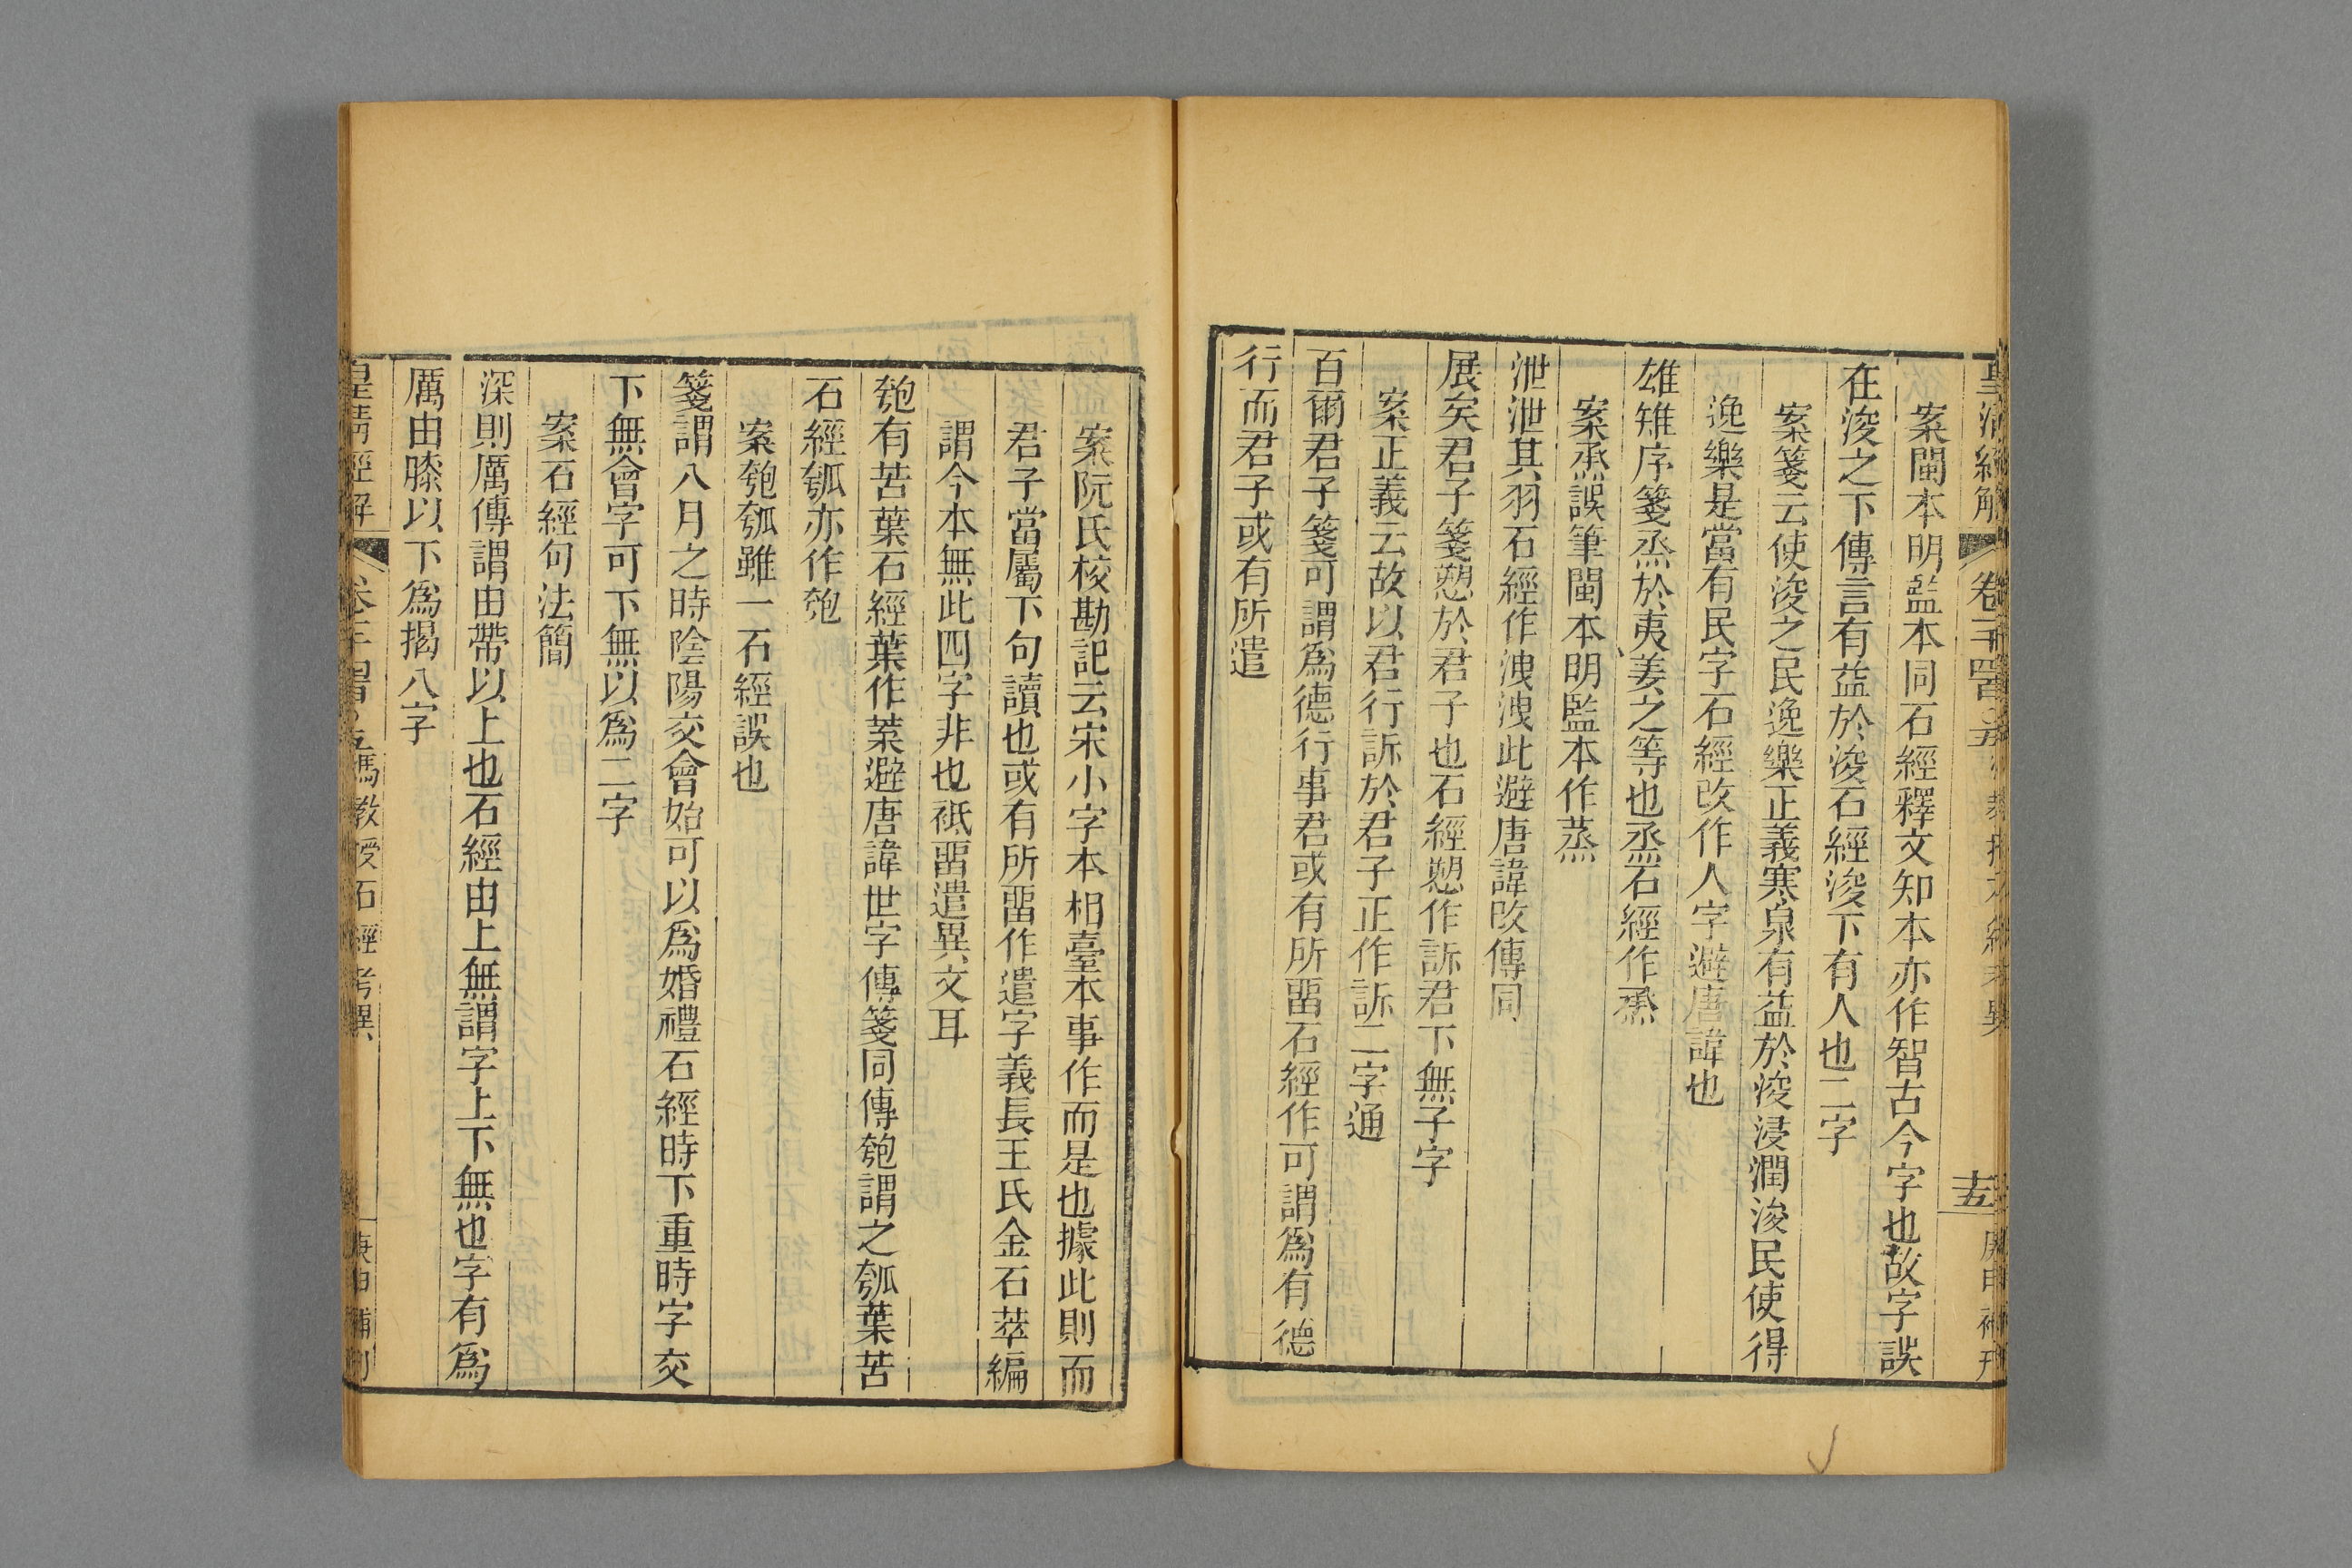 皇清經解
卷千四百五
十五
庚申補刊
案閩本明監本同石經釋文知本亦作智古今字也故字誤
在浚之下傳言有益於浚石經浚下有人也二字
案箋云使浚之民逸樂正義寒泉有益於浚浸潤浚民使得
逸樂是當有民字石經改作人字避唐諱也
雄雉序箋烝於夷姜之等也烝石經作𤍽
案𤍽誤筆閩本明監本作蒸
泄泄其羽石經作洩洩此避唐諱改傳同
展矣君子箋愬於君子也石經愬作訴君下無子字
案正義云故以君行訴於君子正作訴二字通
百爾君子箋可謂爲德行事君或有所畱石經作可謂爲有德
行而君子或有所遣
案阮氏校勘記云宋小字本相臺本事作而是也據此則而
君子當屬下句讀也或有所畱作遣字義長王氏金石萃編
謂今本無此四字非也祗畱遣異文耳
匏有苦葉石經葉作䓲避唐諱世字傳箋同傳匏謂之瓠葉苦
石經瓠亦作匏
案匏瓠雖一石經誤也
箋謂八月之時陰陽交會始可以爲婚禮石經時下重時字交
下無會字可下無以爲二字
案石經句法簡
深則厲傳謂由帶以上也石經由上無謂字上下無也字有爲
厲由膝以下爲揭八字
皇清經解
馮教授石經考異
庚申補刊